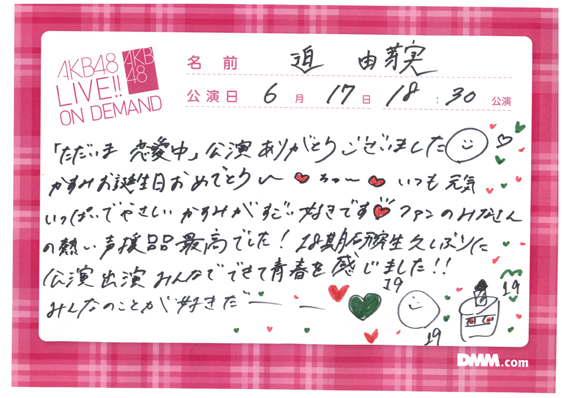 AKB48
LIVE!!
ON DEMAND
AKB
48
名前 迫 由芽実
公演日 6月 17日 18:30 公演
「ただいま 恋愛中」公演ありがとうございました
かすみお誕生日おめでとう〜 ちゅ〜 いつも元気
いっぱいでやさしい かすみがすごい好きです ファンのみなさん
の熱い声援最高でした! 18期研究生久しぶりに
公演出演 みんなでできて青春を感じました!!
みんなのことが好きだーーー
19
19
19
DMM.com